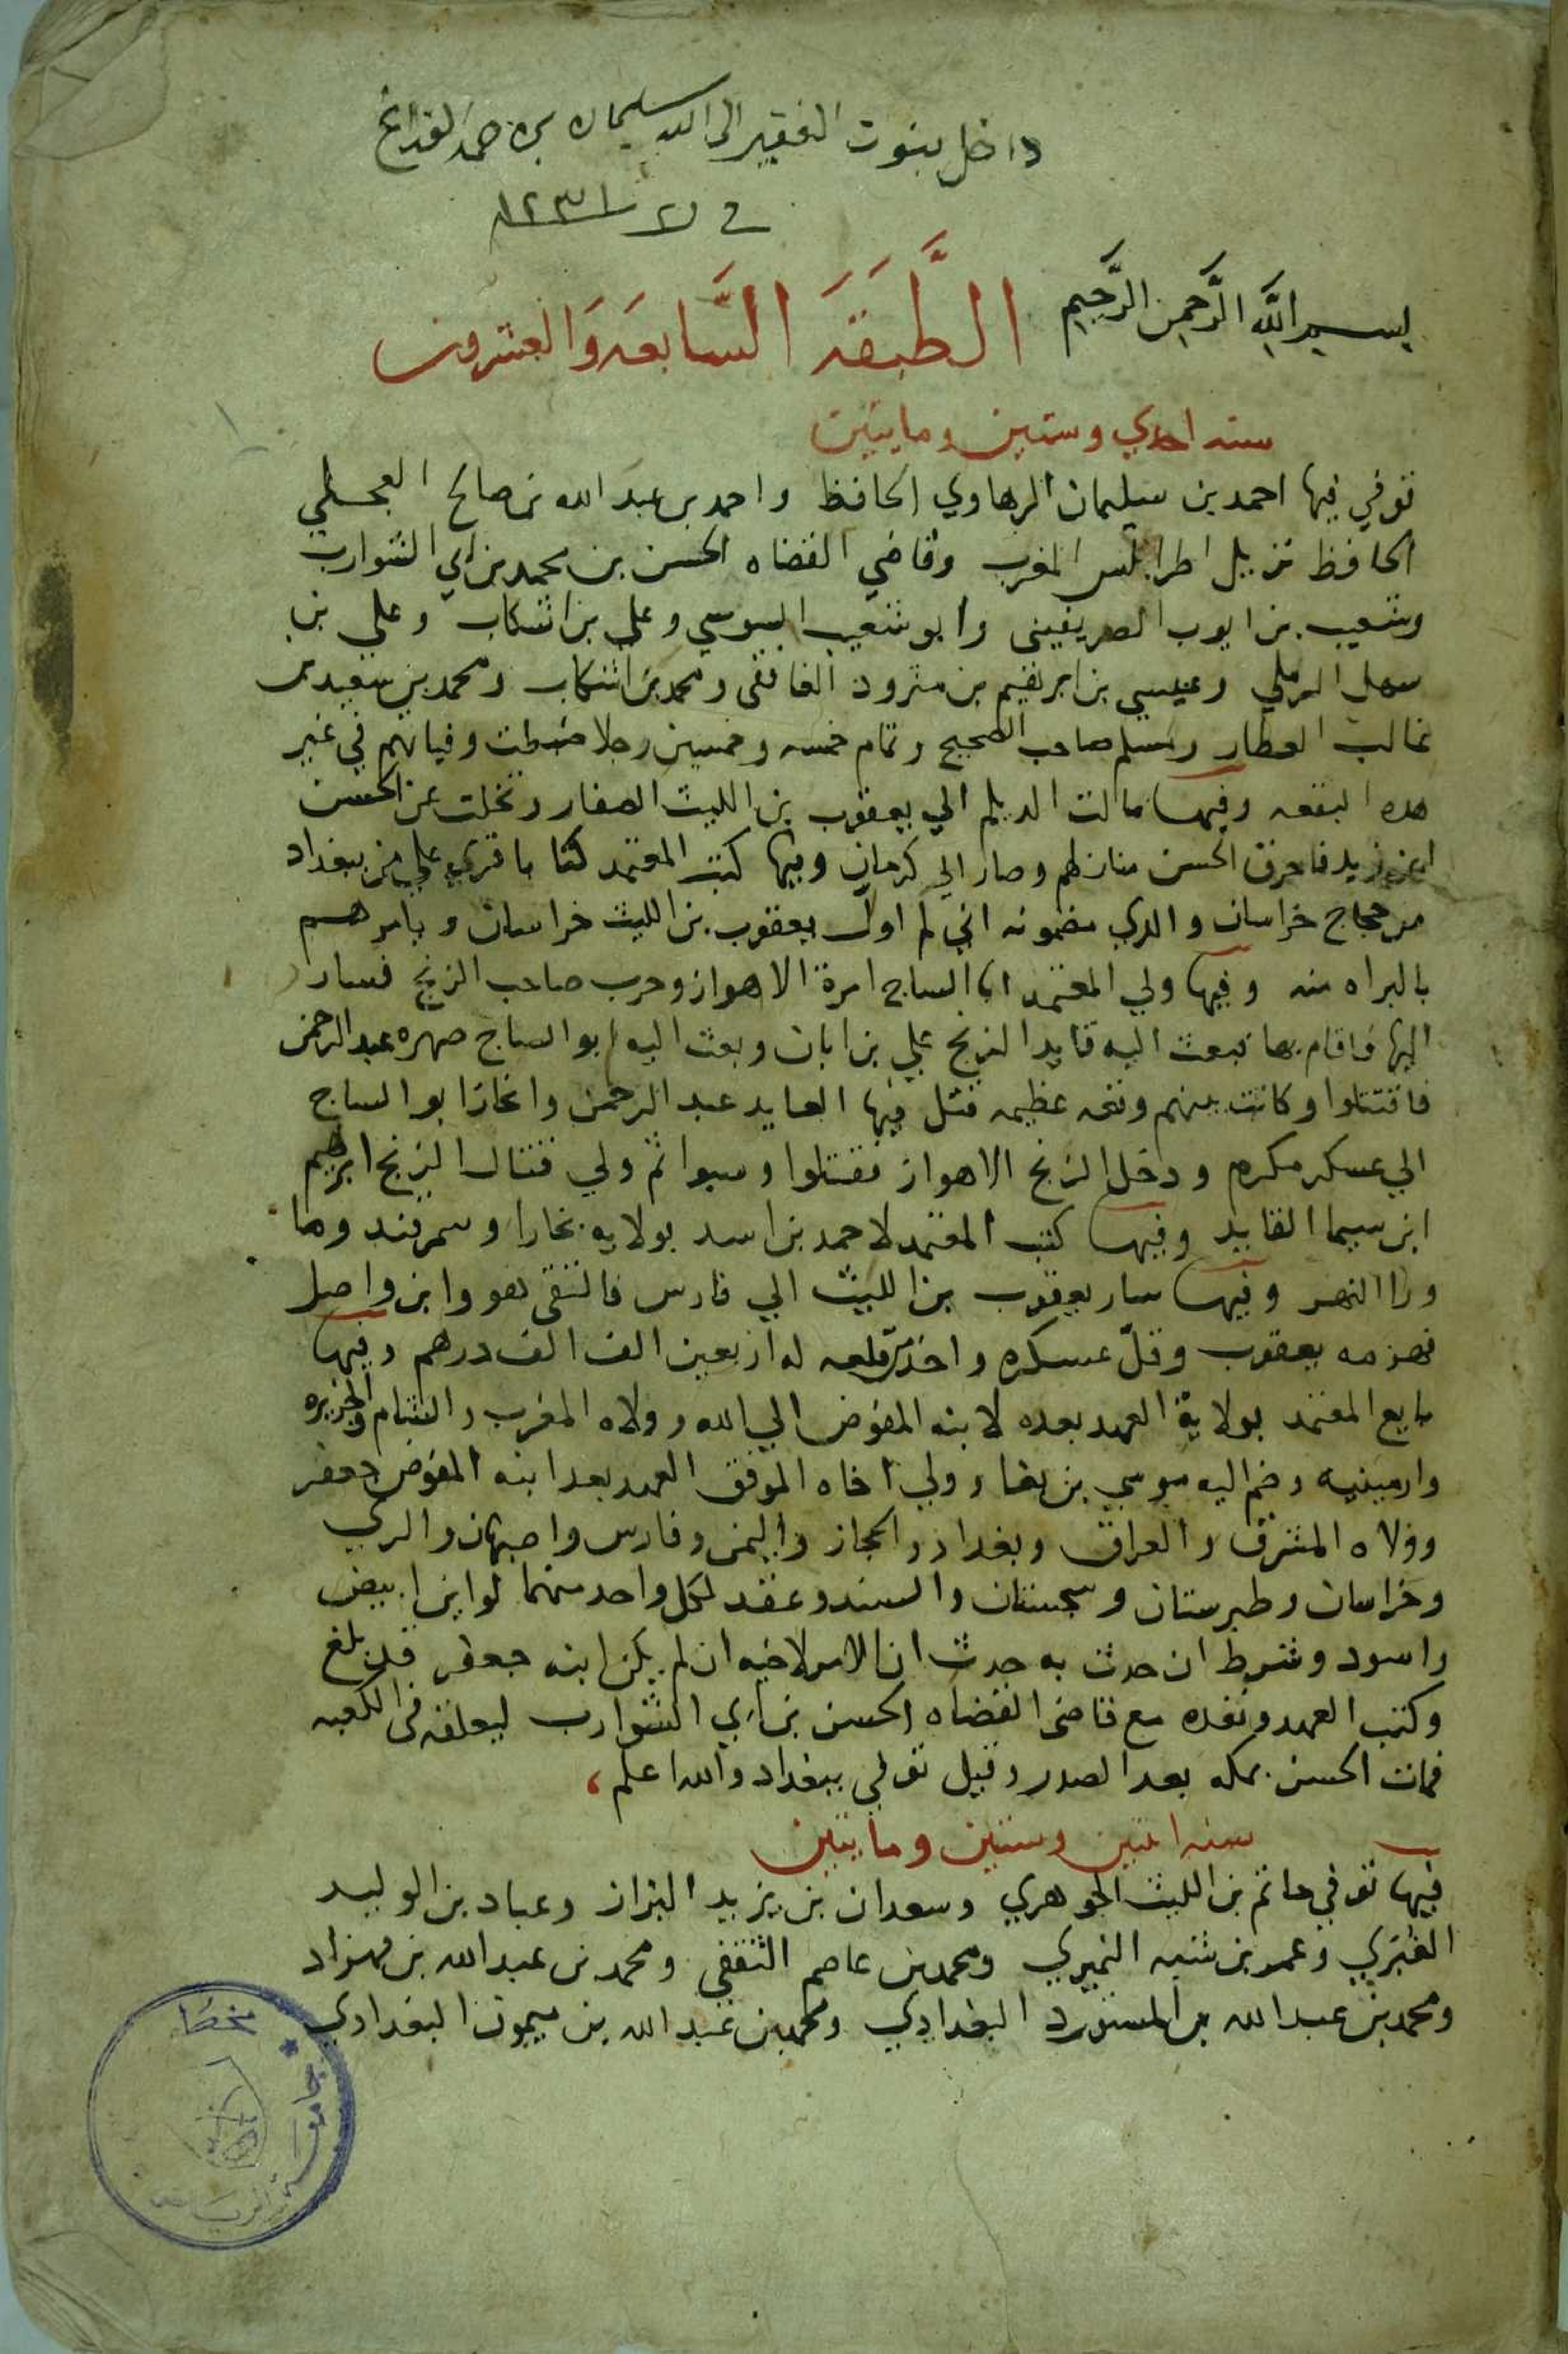 داخل بنوت الفقير الى الله سليمان بن حمد
في ١٢٣١
بسم الله الرَّحمن الرَّحيم الطَّبَقَة السَّابعه وَالعشرون
سنه احدي وستين ومايتين
توفي فيها احمد بن سليمان الرهاوي الحافظ واحمد بن عبد الله بن صالح العجلي
الحافظ نزيل اطرابلس المغرب وقاضي القضاه الحسن بن محمد بن ابي الشوارب
وشعيب بن ايوب الصريفيني وابو شعيب السوسي وعلي بن اشكاب وعلي بن
سهل الرملي وعيسي بن ابرهيم بن مثرود الغافقي ومحمد بن اشكاب ومحمد بن سعيد بن
غالب العطار ومسلم صاحب الصحيح وتمام خمسه وخمسين رجلا ضبطت وفياتهم في غير
هده البقعه وفيها مالت الديلم الي يعقوب بن الليث الصفار وتخلت عن الحسن
ابن زيد فاحرق الحسن منازلهم وصار الي كرمان وفيها كتب المعتمد كتابا قري علي من ببغداد
من حجاج خراسان والري مضمونه اني لم اول يعقوب بن الليث خراسان ويامرهم
بالبراه منه وفيها ولي المعتمد ابا الساج امرة الاهواز وحرب صاحب الزنج فسار
اليها فاقام بها فبعث اليه قايد الزنج علي بن ابان وبعث اليه ابو الساج صهره عبد الرحمن
فاقتتلوا وكانت بينهم وقعه عظيمه قتل فيها القايد عبد الرحمن وانحاز ابو الساج
الي عسكر مكرم ودخل الزنج الاهواز فقتلوا وسبوا ثم ولي قتال الزنج ابرهيم
ابن سيما القايد وفيها كتب المعتمد لاحمد بن اسد بولايه بخارا وسمرقند وما
ورا النهر وفيها سار يعقوب بن الليث الي فارس فالتقى هو وابن واصل
فهزمه يعقوب وفلّ عسكره واخذ من قلعه له اربعين الف الف درهم وفيها
بايع المعتمد بولاية العهد بعده لابنه المفوض الي الله وولاه المغرب والشام والجزيره
وارمينيه وضم اليه موسي بن بغا وولي اخاه الموفق العهد بعد ابنه المفوض جعفر
وولاه المشرق والعراق وبغداد والحجاز واليمن وفارس واصبهان والري
وخراسان وطبرستان وسجستان والسند وعقد لكل واحد منهما لواين ابيض
واسود وشرط ان حدث به حدث ان الامر لاخيه ان لم يكن ابنه جعفر قد بلغ
وكتب العهد ونفده مع قاضى القضاه الحسن بن ابي الشوارب ليعلقه في الكعبه
فمات الحسن بمكه بعد الصدر وقيل توفي ببغداد والله اعلم
سنه اثنين وستين ومايتين
فيها توفي حاتم بن الليث الجوهري وسعدان بن يزيد البزاز وعباد بن الوليد
الغبري وعمر بن شبه النميري ومحمد بن عاصم الثقفي ومحمد بن عبد الله بن قهزاد
ومحمد بن عبد الله بن المستورد البغدادي ومحمد بن عبد الله بن ميمون البغدادي
جامعة الرياض